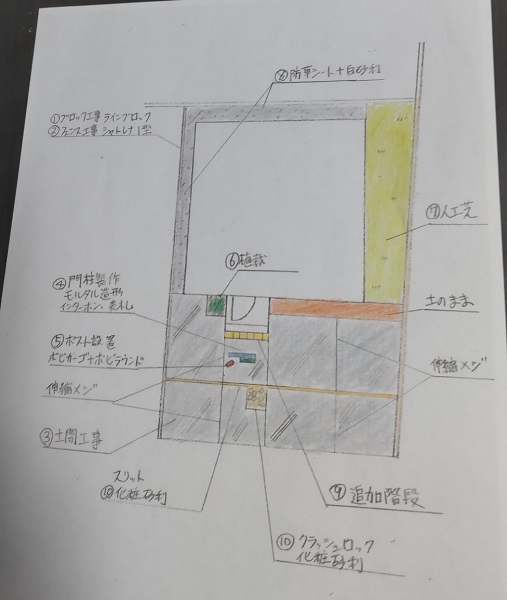 ⑧防草シート+白砂利
①ブロック工事 ラインブロック
②フェンス工事 シャトレナ1型
⑦人工芝
⑥植栽
④門柱製作
モルタル造形
インターホン、表札
土のまま
⑤ポスト設置
ボビカーゴ+ボビラウンド
伸縮メジ
伸縮メジ
③土間工事
スリット
⑩化粧砂利
⑨追加階段
⑩クラッシュロック
化粧砂利